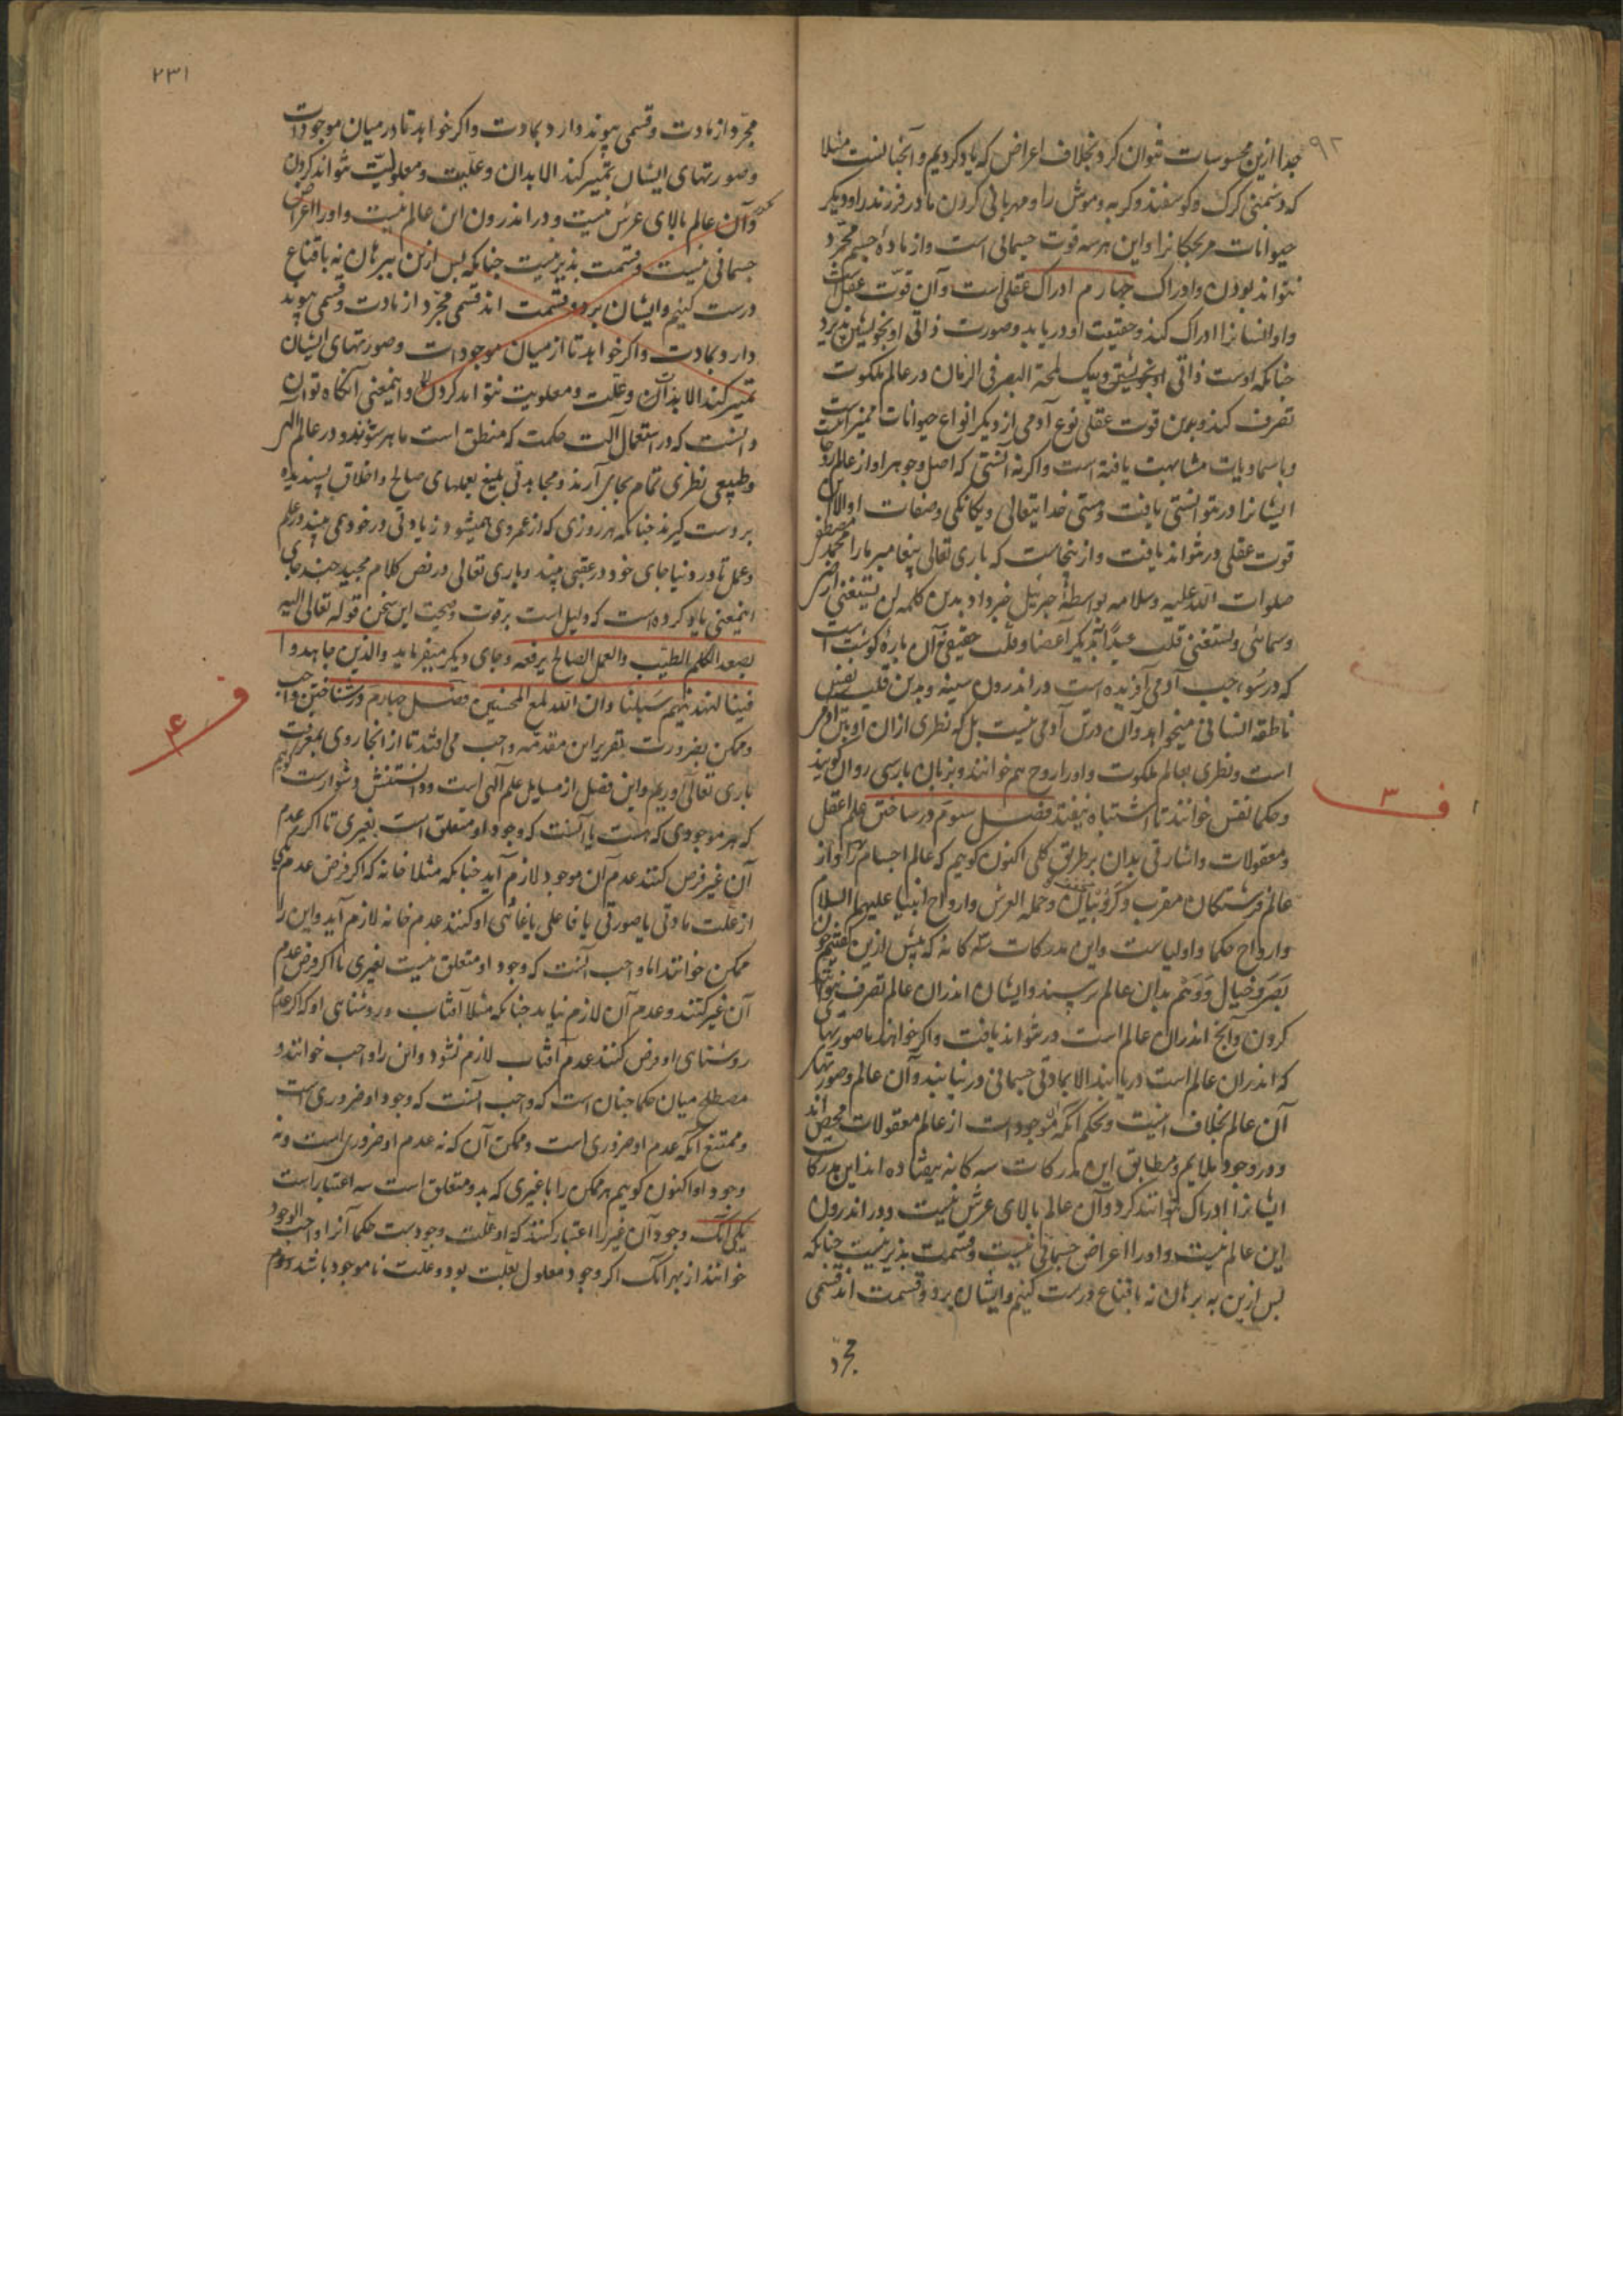 جدا ازین محسوسات نتوان کرد بخلاف اعراض که یاد کردیم و آنچنانست مثلا
که دشمنی کرک و کوسفند و کربه و موش را و مهربانی کردن مادر فرزند را و دیکر
حیوانات مر بچکانرا و این هر سه قوت جسمانی است و از مادهٔ جسم مجرد
نتواند بودن و ادراک چهارم ادراک عقلی است و آن قوت عقل است
و او انسانرا ادراک کند و حقیقت او دریابد و صورت ذاتی او بخویشتن پذیرد
چنانکه اوست ذاتی او بخویشتن و بیک لمحة البصر فی الزمان در عالم ملکوت
تصرف کند و بدین قوت عقلی نوع آدمی از دیکر انواع حیوانات ممیز است
و با سماویات مشابهت یافته است و اکر نه آنستی که اصل و جوهر او از عالم
ایشانرا در نتوانستی یافت و هستی خدایتعالی و یکانکی و صفات او الا این
قوت عقلی در نتواند یافت و از ینجاست که باری تعالی پیغامبر ما را محمد مصطفی
صلوات الله علیه و سلامه بواسطهٔ جبرئیل خبر داد بدین کلمه لن یسعنی ارضی
و سمائی و یسعنی قلب عبدی دیکر اعضا و قلب حقیقی نه آن پارهٔ کوشت است
که در سوی چپ آدمی آفریده است در اندرون سینه و بدین قلب نفس
ناطقه انسانی میخواهد و آن در تن آدمی نیست بل که نظری از ان او بتن آدمی
است و نظری بعالم ملکوت و او را روح هم خوانند و بزبان پارسی روان کویند
و حکما نفس خوانند تا اشتباه نیفتد فصل سوم در ساختن علم عقل
و معقولات و اشارتی بدان بر طریق کلی اکنون کوییم که عالم اجسام را و از
عالم فرشتکان مقرب و کروبیان و حمله العرش و ارواح انبیا علیهم السلام
و ارواح حکما و اولیاست و این مدرکات سه کانه که پیش ازین کفتیم چون
بصر و خیال و وهم بدان عالم نرسند و ایشان اندران عالم تصرف نتوانند
کردن و آنچ اندران عالم است در نتواند یافت و اکر خواهند تا صورتهای
که اندران عالم است دریابند الا بمادتی جسمانی در نیابند و آن عالم و صورتهای
آن عالم بخلاف اینست و بحکم آنکه موجود است از عالم معقولات محض اند
و در وجود ملایم و مطابق این مدرکات سه کانه نیفتاده اند این مدرکات
ایشانرا ادراک نتوانند کرد و آن عالم بالای عرش نیست و در اندرون
این عالم نیست و او را اعراض جسمانی نیست و قسمت پذیر نیست چنانکه
پس ازین به برهان نه باقناع درست کنیم و ایشان بر دو قسمت اند قسمی
مجرد
٩٢
ف ٣
٢٣١
مجرد از مادت و قسمی پیوند دارد بمادت و اکر خواهد تا در میان موجودات
و صورتهای ایشان تمییز کند الا بدان و علیت و معلولیت نتواند کردن
و آن عالم بالای عرش نیست و در اندرون این عالم نیست و او را اعراض
جسمانی نیست و قسمت پذیر نیست چنانکه پس ازین ببرهان نه باقناع
درست کنیم و ایشان بر دو قسمت اند قسمی مجرد از مادت و قسمی پیوند
دارد بمادت و اکر خواهد تا از میان موجودات و صورتهای ایشان
تمییز کند الا بدان و علت و معلولیت نتواند کردن و اینمعنی آنکاه توان
دانست که در استعمال آلت حکمت که منطق است ماهر شوند و در عالم الهی
و طبیعی نظری تمام بجای آرند و مجاهدتی بلیغ بعملهای صالح و اخلاق پسندیده
بر دست کیرند چنانکه هر روزی که از عمر وی همیشود زیادتی در خود همی بیند در علم
و عمل تا در دنیا جای خود در عقبی بیند و باری تعالی در نص کلام مجید چند جای
اینمعنی یاد کرده است که دلیل است بر قوت و صحت این سخن قوله تعالی الیه
یصعد الکلم الطیب و العمل الصالح یرفعه و جای دیکر میفرماید والذین جاهدوا
فینا لنهدینهم سبلنا و ان الله لمع المحسنین فصل چهارم در شناختن واجب
و ممکن بضرورت بتقریر این مقدمه واجب می افتد تا از آنجا روی بمعرفت
باری تعالی آوریم و این فصل از مسایل علم الهی است و دانستنش دشوارست کوییم
که هر موجودی که هست یا آنست که وجود او متعلق است بغیری تا اکر عدم
آن غیر فرض کنند عدم آن موجود لازم آید چنانکه مثلا خانه که اکر فرض عدم یکی
از علت مادتی یا صورتی یا فاعلی یا غائی او کنند عدم خانه لازم آید و این را
ممکن خوانند اما واجب آنست که وجود او متعلق نیست بغیری تا اکر فرض عدم
آن غیر کنند و عدم آن لازم نیاید چنانکه مثلا آفتاب و روشنایی او که اکر عدم
روشنای او فرض کنند عدم آفتاب لازم نشود و این را واجب خوانند و
مصطلح میان حکما چنان است که واجب آنست که وجود او ضروری است
و ممتنع آنکه عدم او ضروری است و ممکن آن که نه عدم او ضروری است و نه
وجود او اکنون کوییم هر ممکن را با غیری که بدو متعلق است سه اعتبار است
یکی آنک وجود آن غیر را اعتبار کنند که او علت وجودست حکما آنرا واجب الوجود
خوانند از بهر آنک اکر وجود معلول بعلت بود و علت نا موجود باشد دوم
ف ۴